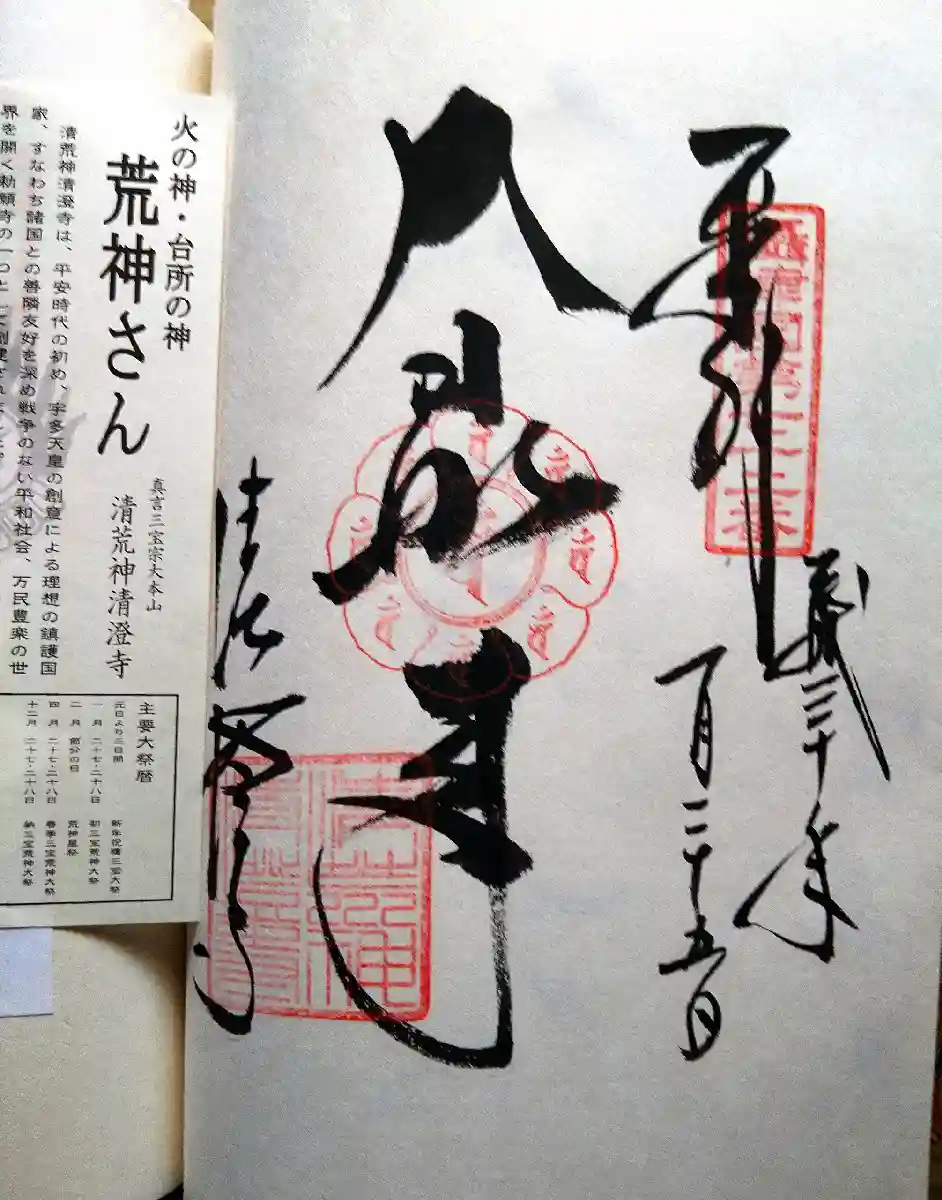 奉拝
平成三十年
一月二十五日
大日如来
清荒神
火の神・台所の神
荒神さん
真言三宝宗大本山
清荒神清澄寺
清荒神清澄寺は、平安時代の初め、宇多天皇の創意による理想の鎮護国
家、すなわち諸国との善隣友好を深め戦争のない平和社会、万民豊楽の世
界を開く勅願寺の一つとして創建されました。
主要大祭暦
元日より三日間 新年祝祷三宝大祭
一月 二十七・二十八日 初三宝荒神大祭
二月 節分の日 荒神星祭
四月 二十七・二十八日 春季三宝荒神大祭
十二月 二十七・二十八日 納三宝荒神大祭